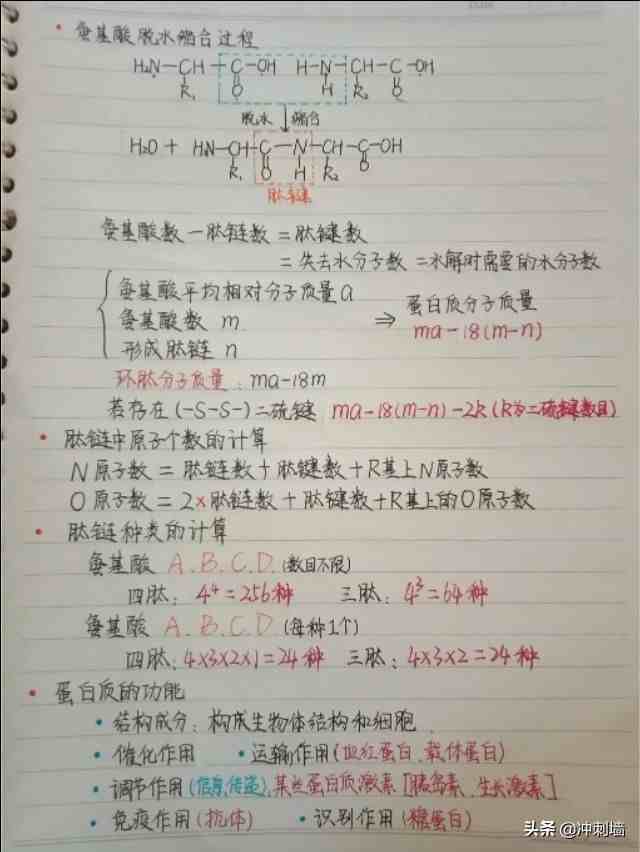 • 氨基酸脱水缩合过程
H₂N-CH-C-OH H-N-CH-C-OH
R₁ O H R₂ O
脱水 ↓ 缩合
H₂O + H₂N-CH-C-N-CH-C-OH
R₁ O H R₂ O
肽键
氨基酸数-肽链数=肽键数
=失去水分子数=水解时需要的水分子数
氨基酸平均相对分子质量a
氨基酸数 m ⇒ 蛋白质分子质量
形成肽链 n ma-18(m-n)
环肽分子质量:ma-18m
若存在(-S-S-)二硫键 ma-18(m-n)-2R(R为二硫键数目)
• 肽链中原子个数的计算
N原子数=肽链数+肽键数+R基上N原子数
O原子数=2×肽链数+肽键数+R基上的O原子数
• 肽链种类的计算
氨基酸 A.B.C.D.(数目不限)
四肽:4⁴=256种 三肽:4³=64种
氨基酸 A.B.C.D(每种1个)
四肽:4×3×2×1=24种 三肽:4×3×2=24种
• 蛋白质的功能
• 结构成分:构成生物体结构和细胞
• 催化作用 • 运输作用(血红蛋白、载体蛋白)
• 调节作用(信息传递),某些蛋白质激素[胰岛素、生长激素]
• 免疫作用(抗体) • 识别作用(糖蛋白)
头条 @冲刺墙